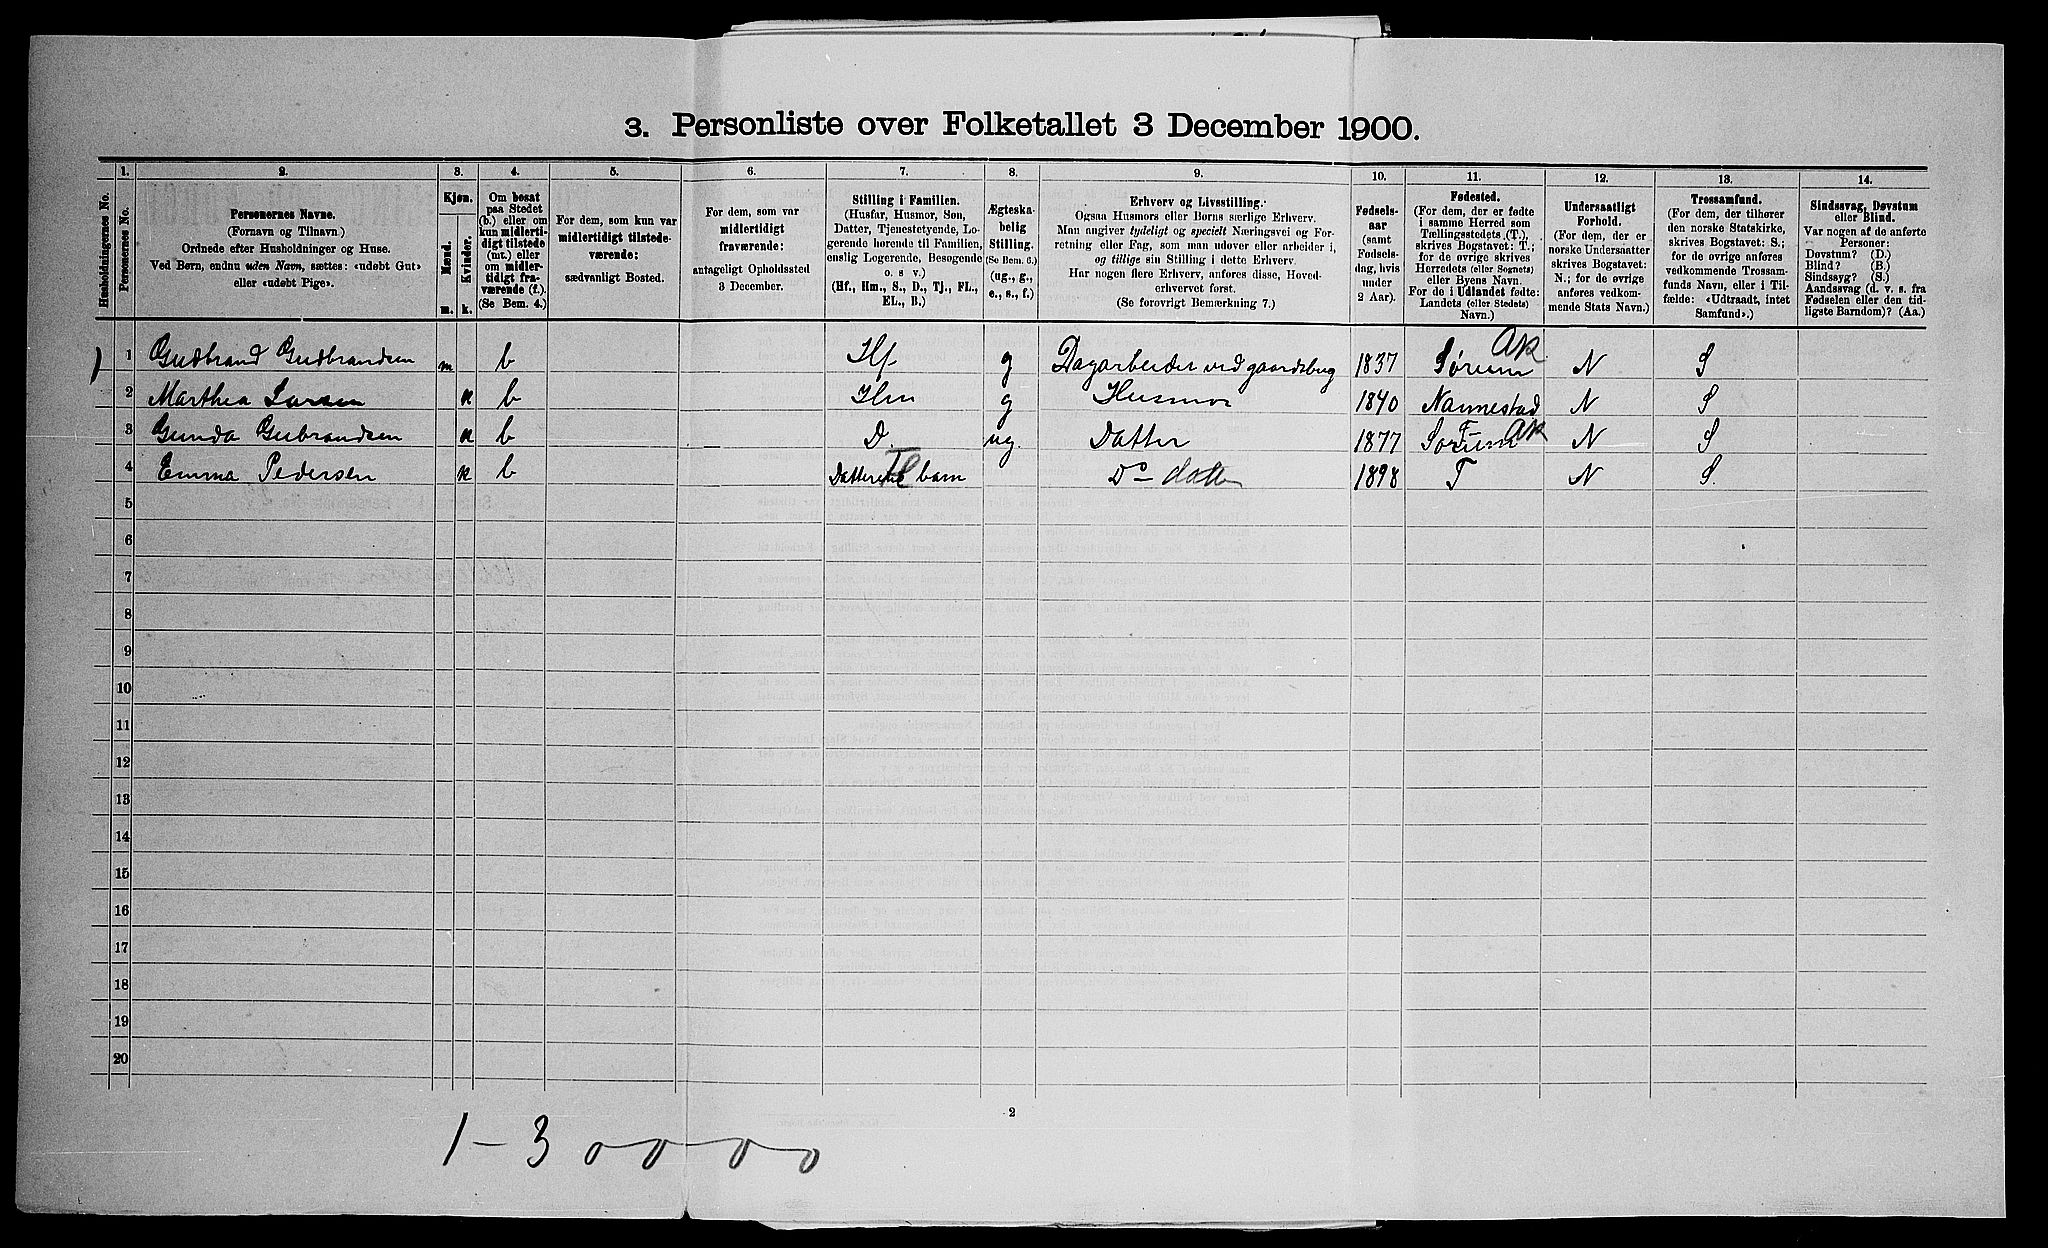 3. Personliste over Folketallet 3 December 1900.
1. 2. 3. 4. 5. 6. 7. 8. 9. 10. 11. 12. 13. 14.
Husholdningernes No.
Personernes No.
Personernes Navne.
(Fornavn og Tilnavn.)
Ordnede efter Husholdninger og Huse.
Ved Børn, endnu uden Navn, sættes: «udøbt Gut»
eller «udøbt Pige».
Kjøn.
Mænd.
Kvinder.
m. k.
Om bosat
paa Stedet
(b.) eller om
kun midlerti-
digt tilstede
(mt.) eller
om midler-
tidigt fra-
værende (f.)
(Se Bem. 4.)
For dem, som kun var
midlertidigt tilstede-
værende:
sædvanligt Bosted.
For dem, som var
midlertidigt
fraværende:
antageligt Opholdssted
3 December.
Stilling i Familien.
(Husfar, Husmor, Søn,
Datter, Tjenestetyende, Lo-
gerende hørende til Familien,
enslig Logerende, Besøgende
o. s. v.)
(Hf., Hm., S., D., Tj., FL.,
EL., B.)
Ægteska-
belig
Stilling.
(Se Bem. 6.)
(ug., g.,
e., s., f.)
Erhverv og Livsstilling.
Ogsaa Husmors eller Børns særlige Erhverv.
Man angiver tydeligt og specielt Næringsvei og For-
retning eller Fag, som man udøver eller arbeider i,
og tillige sin Stilling i dette Erhverv.
Har nogen flere Erhverv, anføres disse, Hoved-
erhvervet først.
(Se forøvrigt Bemærkning 7.)
Fødsels-
aar
(samt
Fødsels-
dag, hvis
under
2 Aar).
Fødested.
(For dem, der er fødte
i samme Herred som
Tællingsstedets (T.),
skrives Bogstavet: T.;
for de øvrige skrives
Herredets (eller Sognets)
eller Byens Navn.
For de i Udlandet fødte:
Landets (eller Stedets)
Navn.)
Undersaatligt
Forhold.
(For dem, der er
norske Undersaatter
skrives Bogstavet:
N.; for de øvrige
anføres vedkom-
mende Stats Navn.)
Trossamfund.
(For dem, der tilhører
den norske Statskirke,
skrives Bogstavet: S.;
for de øvrige anføres
vedkommende Trossam-
funds Navn, eller i Til-
fælde: «Udtraadt, intet
Samfund».)
Sindssvag, Døvstum
eller Blind.
Var nogen af de anførte
Personer:
Døvstum? (D.)
Blind? (B.)
Sindssyg? (S.)
Aandssvag (d. v. s. fra
Fødselen eller den tid-
ligste Barndom)? (Aa.)
1 Gudbrand Gudbrandsen m b Hf g Dagarbeider ved gaardsbrug 1837 Sørum Ak N S
2 Marthea Larsen k b Hm g Husmor 1840 Nannestad N S
3 Gunda Gubrandsen k b D. ug. Datter 1877 Sørum T Ak N S
4 Emma Pedersen k b barn Do datter 1898 T N S.
5
6
7
8
9
10
11
12
13
14
15
16
17
18
19
20
2
1-3 0 0 0 0